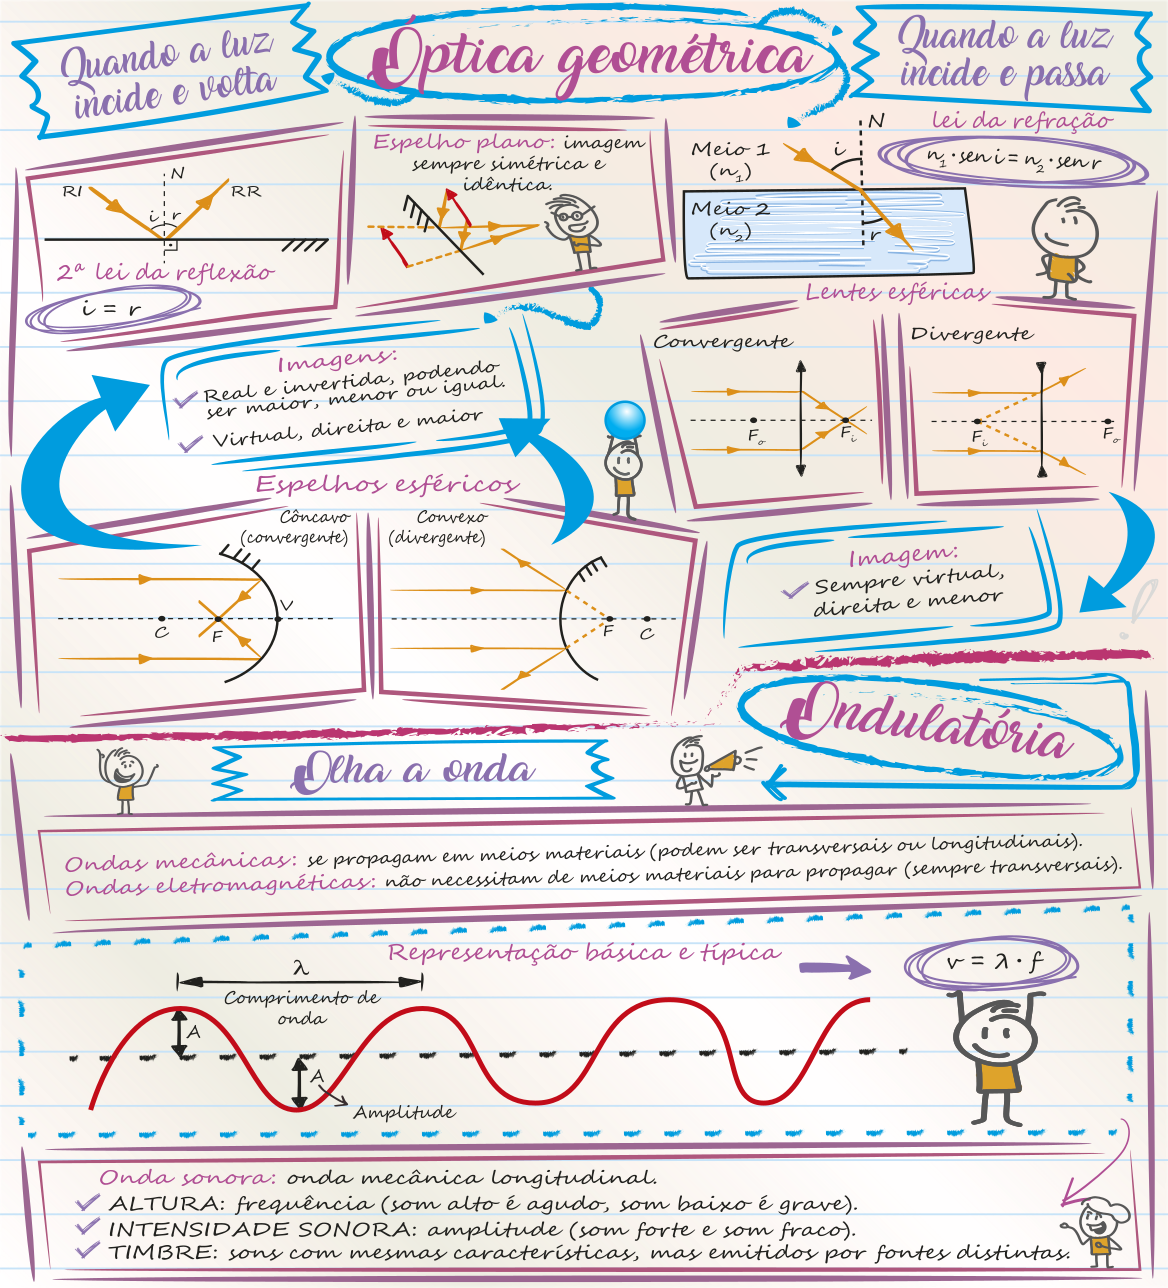 Quando a luz
incide e volta
Óptica geométrica
Quando a luz
incide e passa
RI
N
RR
i
r
2ª lei da reflexão
i = r
Espelho plano: imagem
sempre simétrica e
idêntica.
Meio 1
(n1)
i
N
lei da refração
n1·sen i = n2·sen r
Meio 2
(n2)
r
Lentes esféricas
Convergente
Fo
Fi
Divergente
Fi
Fo
Imagens:
Real e invertida, podendo
ser maior, menor ou igual.
Virtual, direita e maior
Espelhos esféricos
Côncavo
(convergente)
C
F
V
Convexo
(divergente)
F
C
Imagem:
Sempre virtual,
direita e menor
Ondulatória
Olha a onda
Ondas mecânicas: se propagam em meios materiais (podem ser transversais ou longitudinais).
Ondas eletromagnéticas: não necessitam de meios materiais para propagar (sempre transversais).
Representação básica e típica
v = λ · f
λ
Comprimento de
onda
A
A
Amplitude
Onda sonora: onda mecânica longitudinal.
ALTURA: frequência (som alto é agudo, som baixo é grave).
INTENSIDADE SONORA: amplitude (som forte e som fraco).
TIMBRE: sons com mesmas características, mas emitidos por fontes distintas.